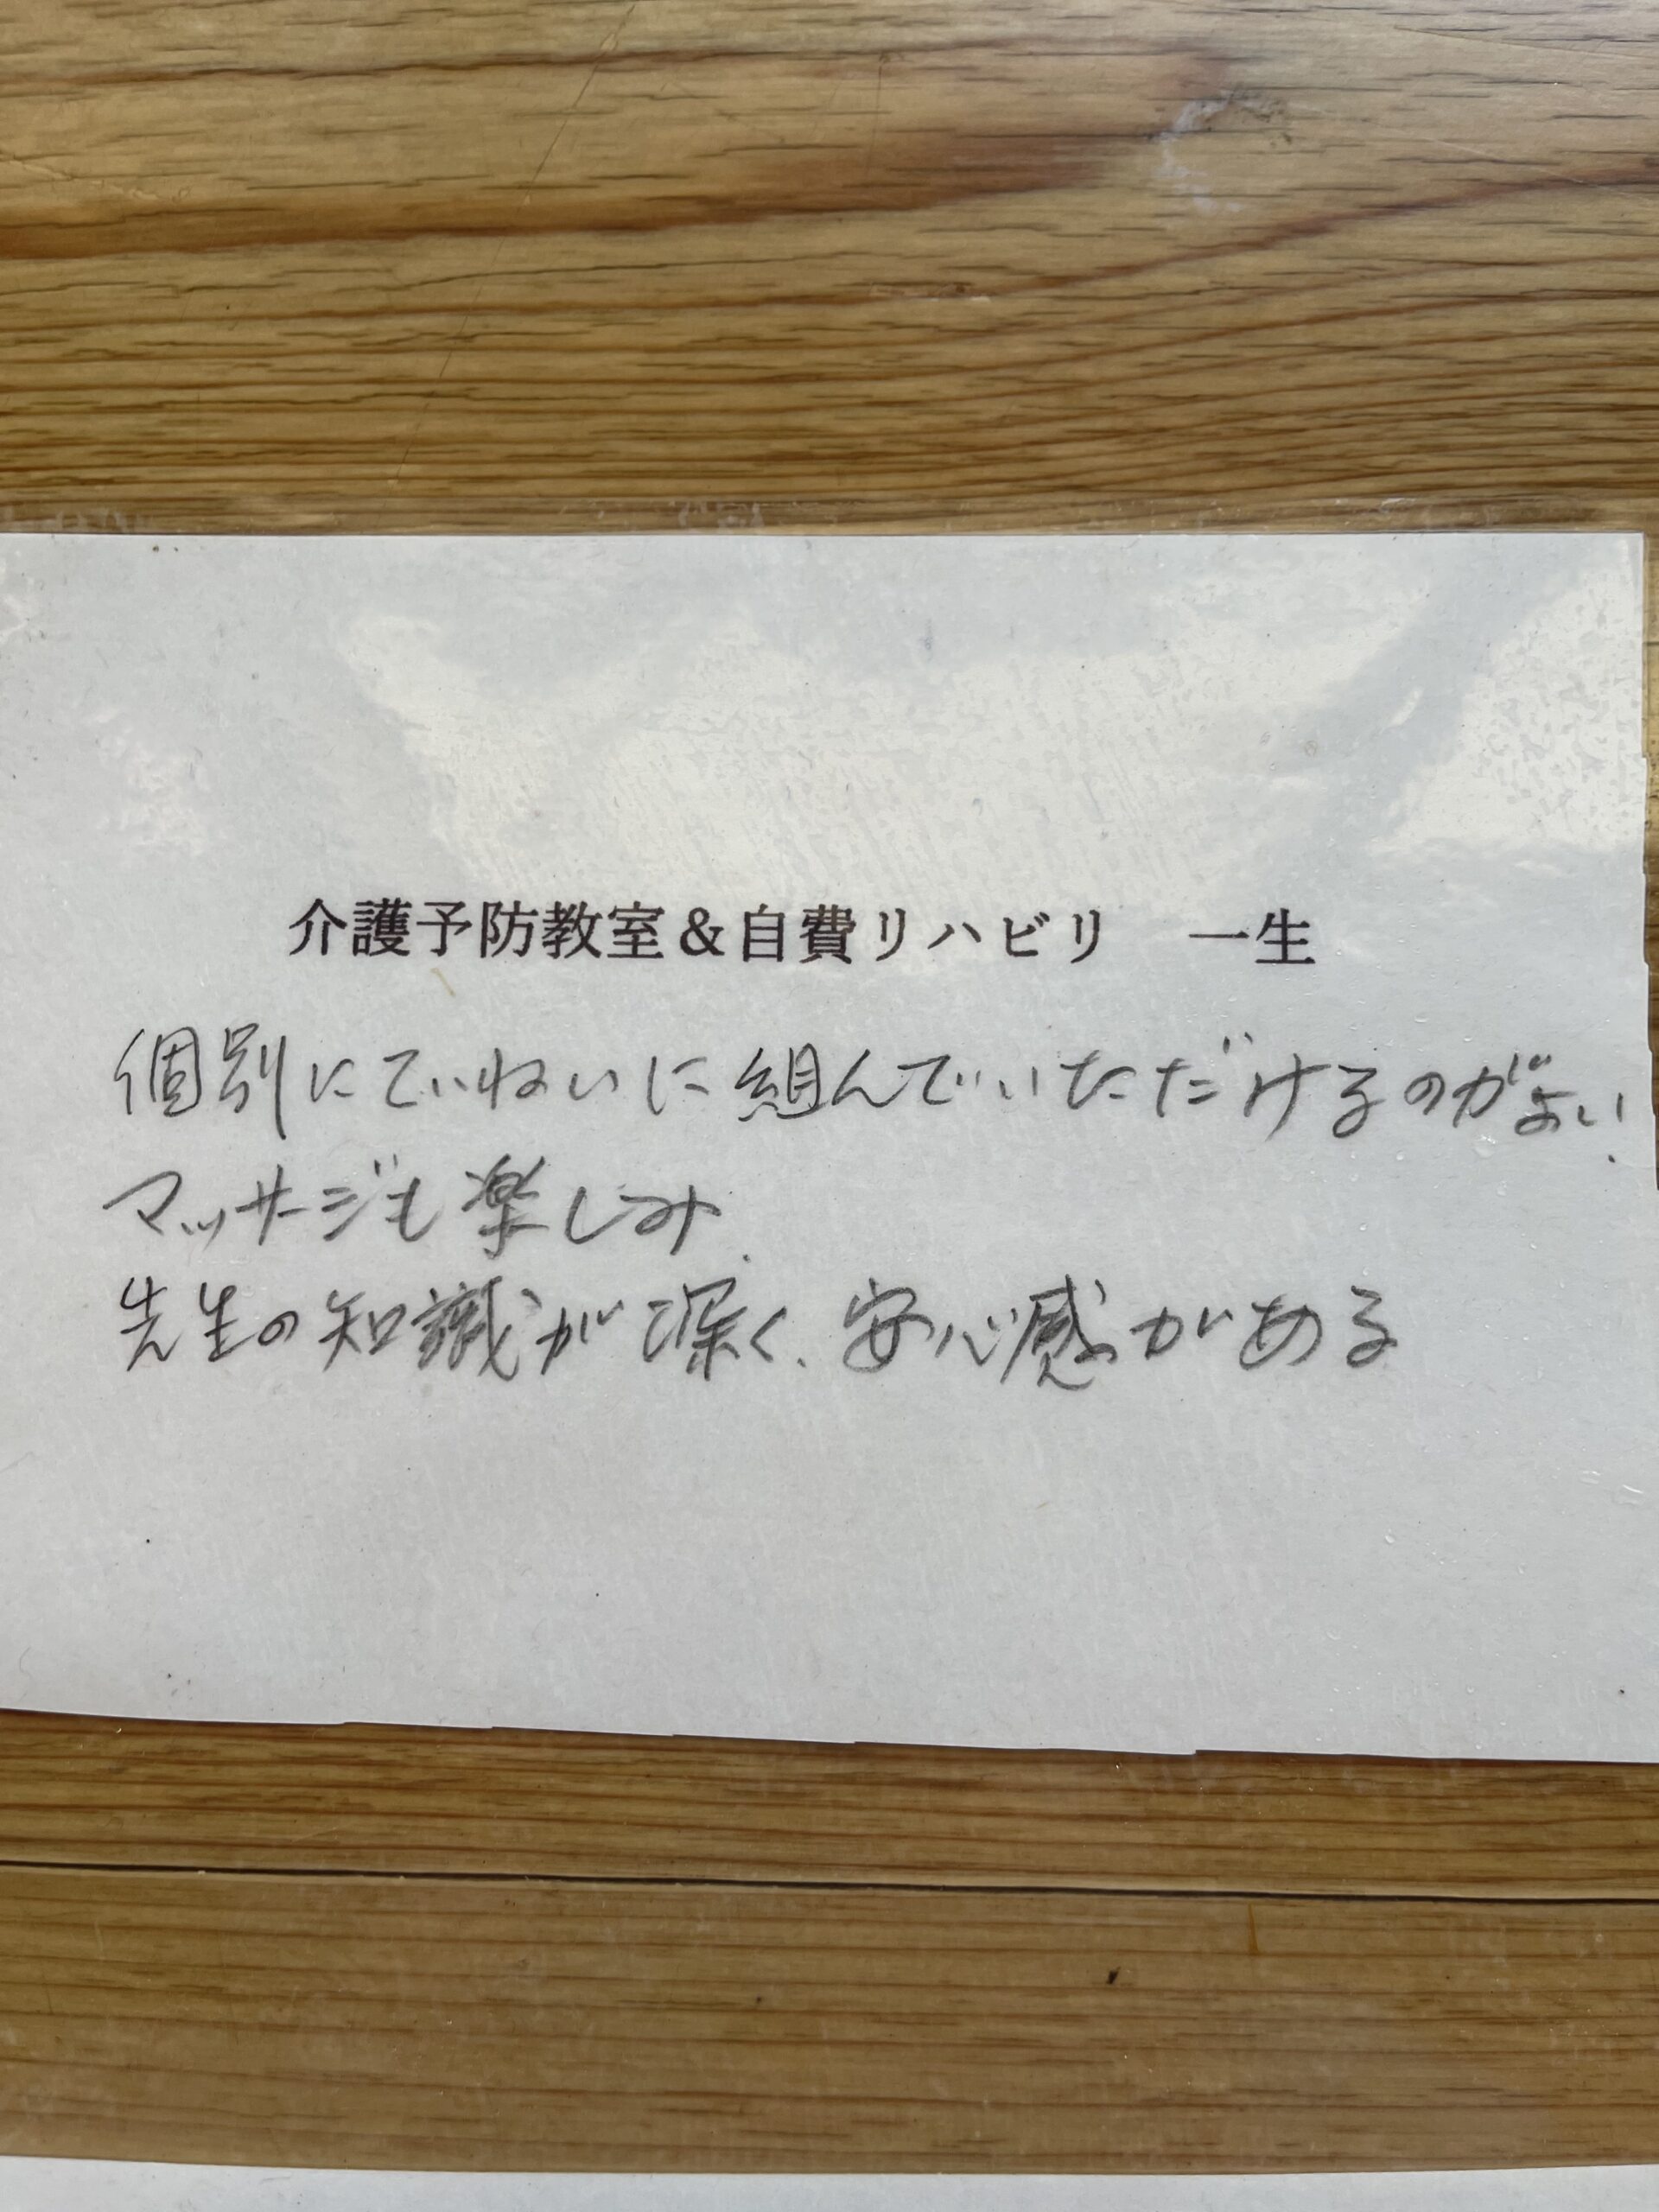 介護予防教室&自費リハビリ　一生
個別にていねいに組んでいただけるのがよい.
マッサージも楽しみ.
先生の知識が深く、安心感がある